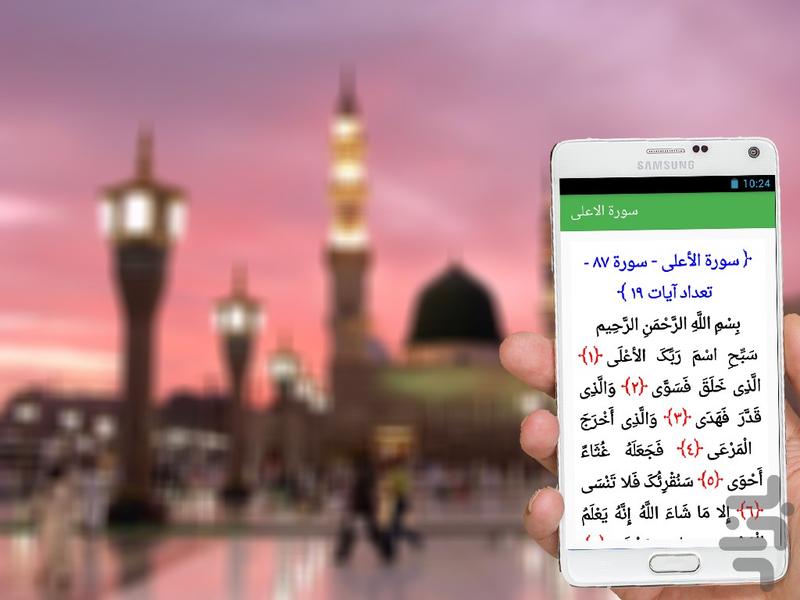 SAMSUNG
10:24
سورة الاعلی
﴿ سورة الأعلى - سورة ٨٧ -
تعداد آیات ١٩ ﴾
بِسْمِ اللَّهِ الرَّحْمَنِ الرَّحِيمِ
سَبِّحِ اسْمَ رَبِّکَ الأعْلَى ﴿١﴾
الَّذِی خَلَقَ فَسَوَّى ﴿٢﴾ وَالَّذِی
قَدَّرَ فَهَدَى ﴿٣﴾ وَالَّذِی أَخْرَجَ
الْمَرْعَى ﴿٤﴾ فَجَعَلَهُ غُثَاءً
أَحْوَى ﴿٥﴾ سَنُقْرِئُکَ فَلا تَنْسَى
﴿٦﴾ إِلا مَا شَاءَ اللَّهُ إِنَّهُ يَعْلَمُ
بازار